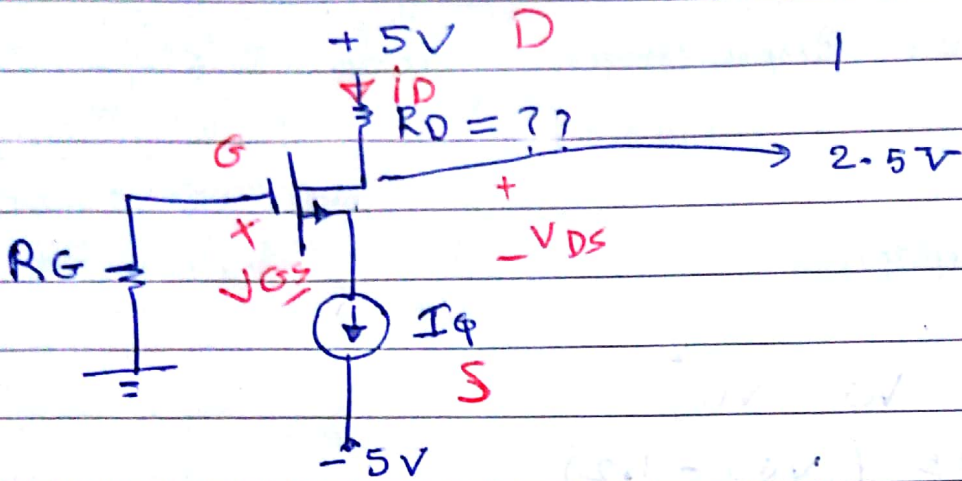 + 5V D
iD
RD = ??
G
2.5V
+
- VDS
+
VGS
RG
IQ
S
- 5V